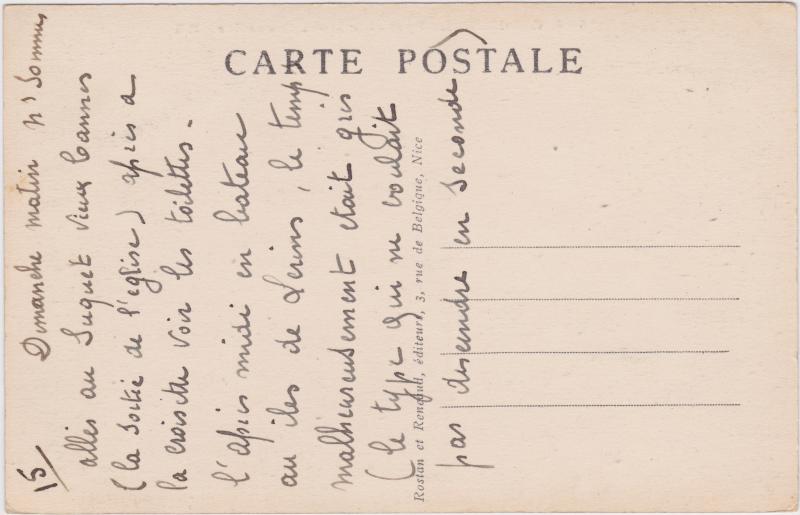 CARTE POSTALE
15/
Dimanche matin n's sommes
allés au Suquet vieux Cannes
(la sortie de l'eglise) après a
la croisette voir les toilettes.
l'après midi en bateau
au iles de Lerins, le temps
malheureusement était gris
(le type qui ne voulait
pas descendre en seconde
Rostan et Renaud, éditeurs, 3, rue de Belgique, Nice